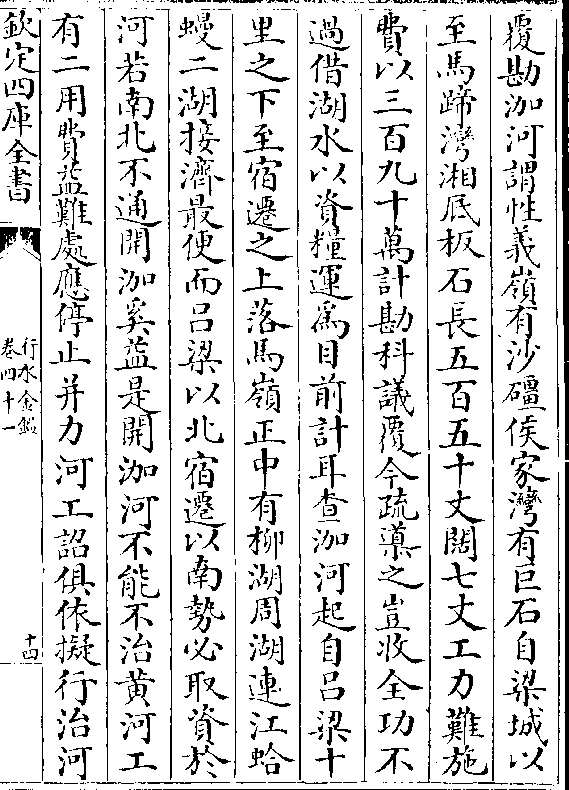 覆勘泇河謂性義嶺有沙礓侯家灣有巨石自梁城以
至馬蹄灣湘底板石長五百五十丈闊七丈工力難施
費以三百九十萬計勘科議覆今疏導之豈收全功不
過借湖水以資糧運爲目前計耳查泇河起自吕梁十
里之下至宿遷之上落馬嶺正中有柳湖周湖連江蛤
蟃二湖接濟最便而吕梁以北宿遷以南勢必取資於
河若南北不通開泇奚益是開泇河不能不治黄河工
有二用費益難處應停止并力河工詔俱依擬行治河
欽定四庫全書
行水金鑑
卷四十一
十四